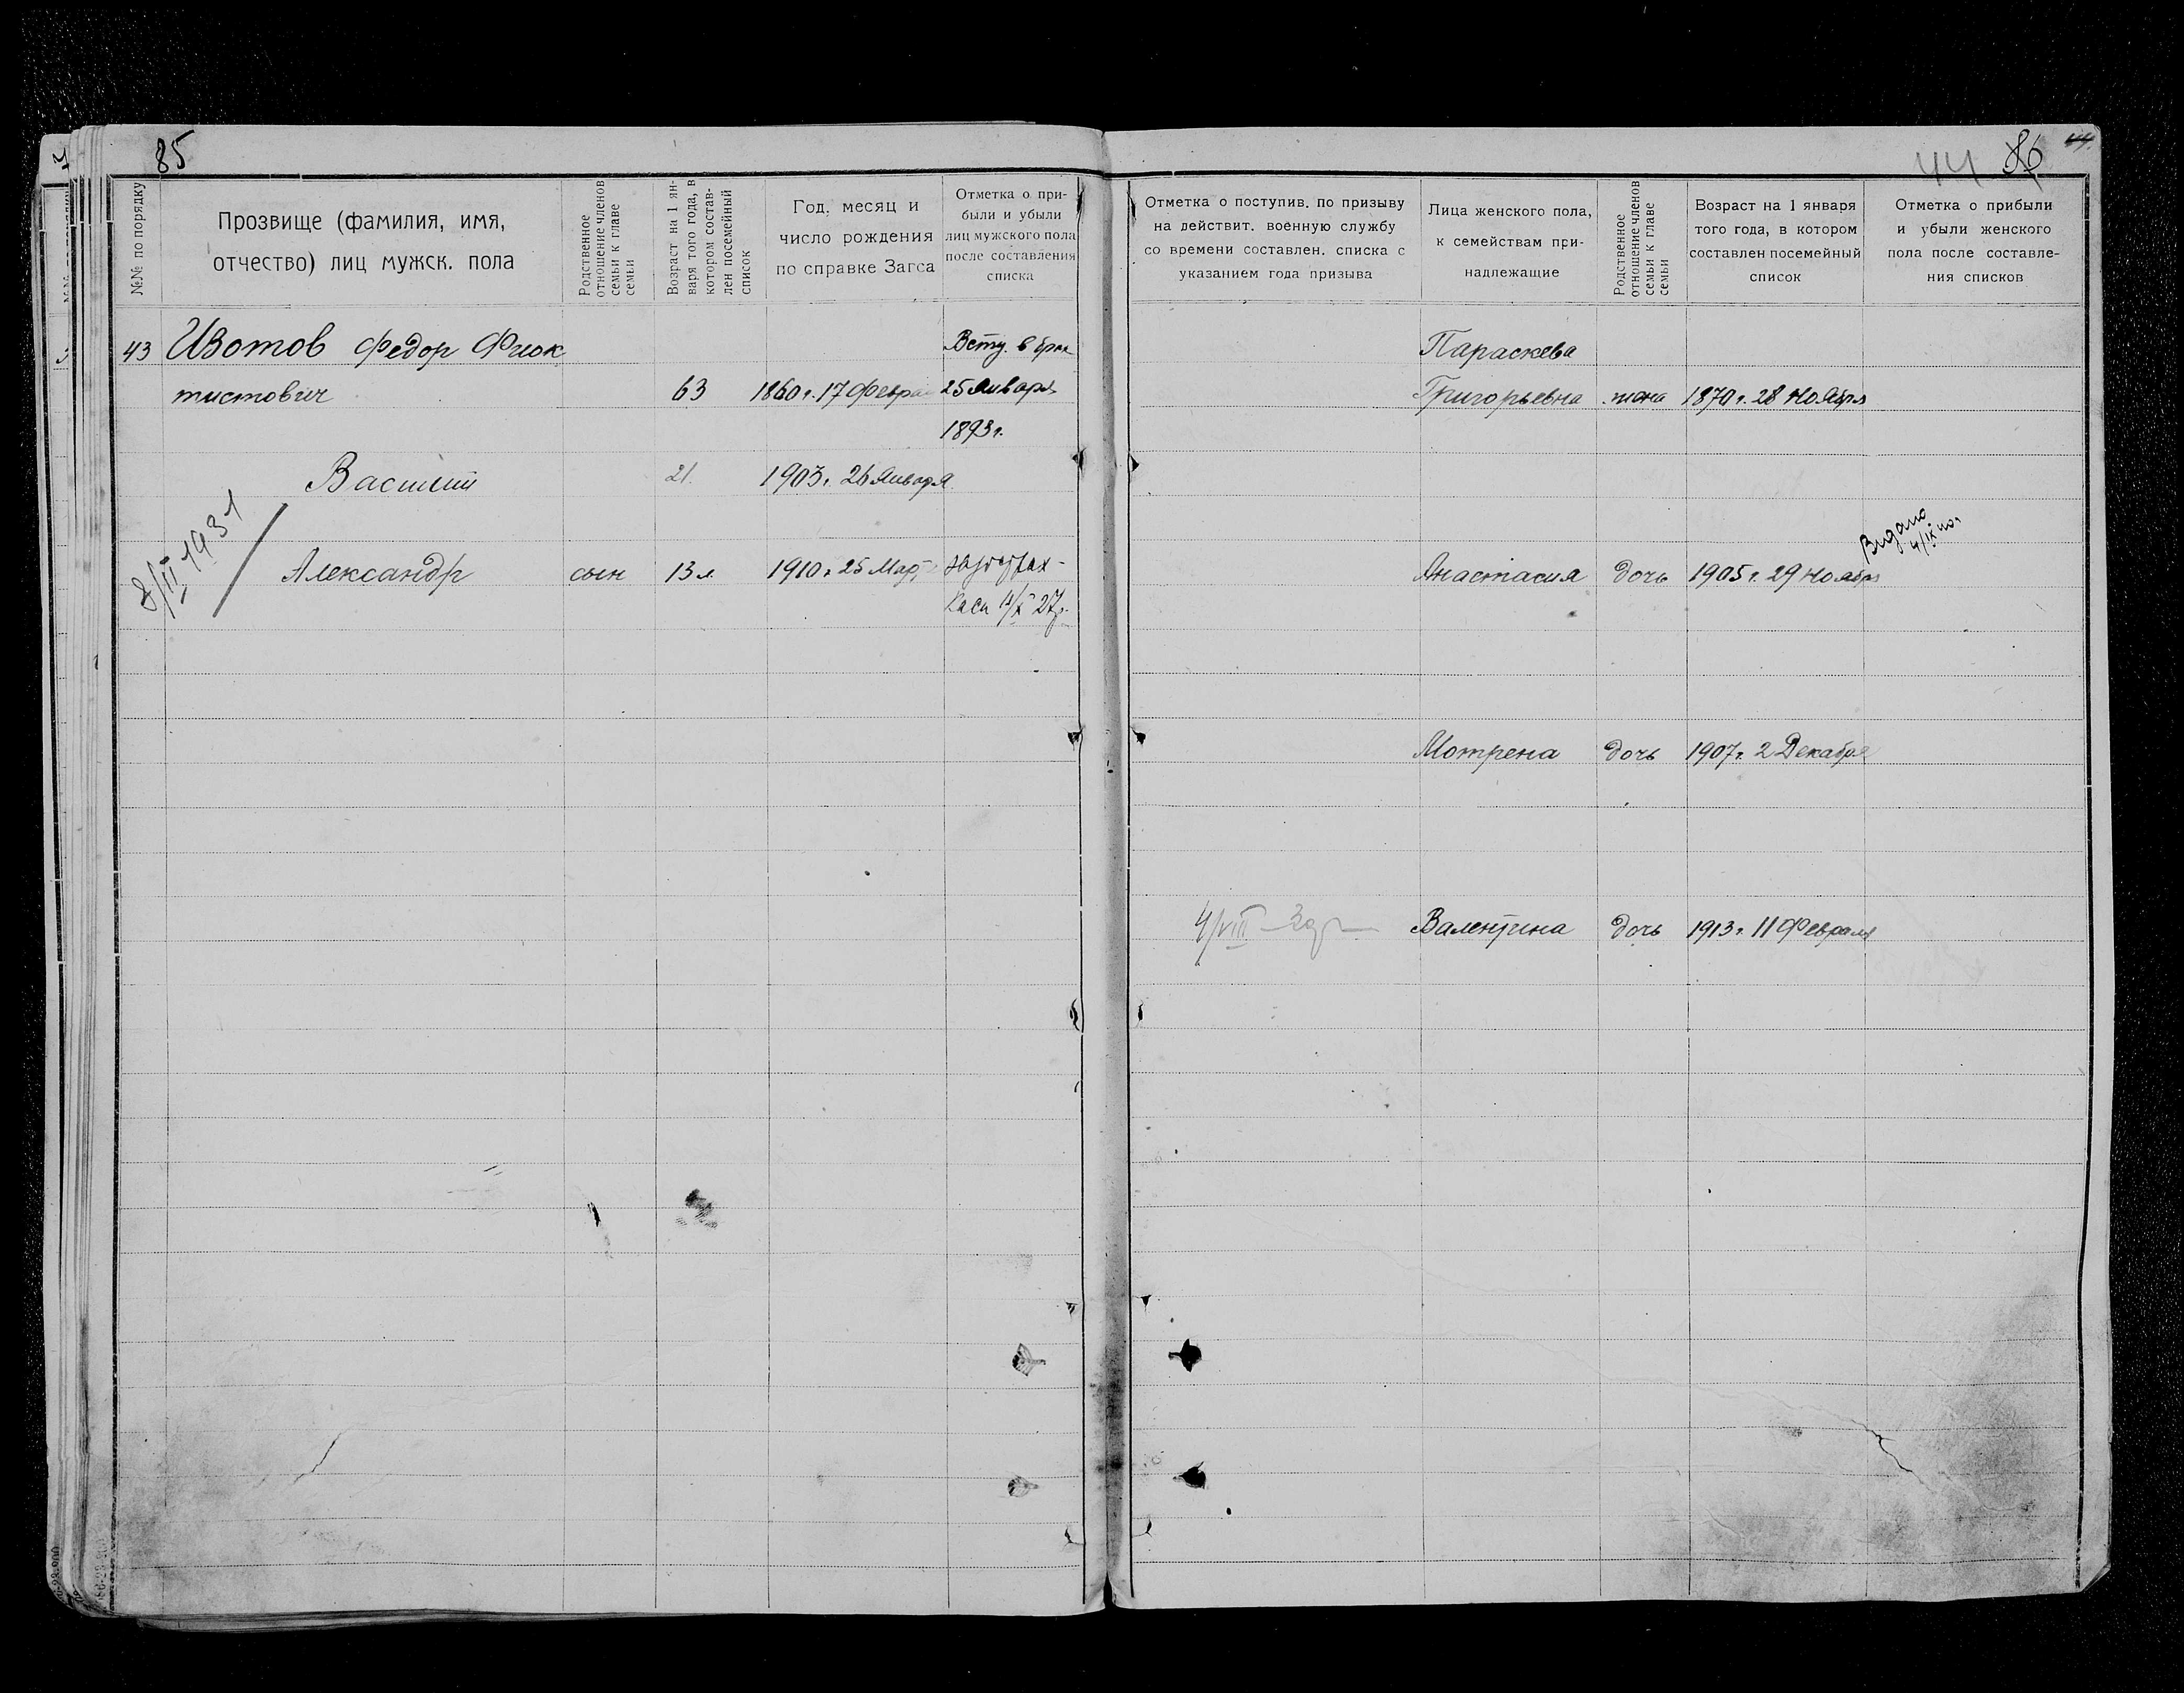 85
№№ по порядку
Прозвище (фамилия, имя,
отчество) лиц мужск. пола
Родственное
отношение членов
семьи к главе
семьи
Возраст на 1 ян-
варя того года, в
котором состав-
лен посемейный
список
Год, месяц и
число рождения
по справке Загса
Отметка о при-
были и убыли
лиц мужского пола
после составления
списка
43 Изотов Федор Фиок
тистович 63 1860 г. 17 Февра
Всту. в брак
25 Января
1893 г.
Василий 21. 1903 г. 26 Января
8/II 1931
Александр сын 13 л. 1910 г. 25 Мар
Каси 27 г.
44 86
Отметка о поступив. по призыву
на действит. военную службу
со времени составлен. списка с
указанием года призыва
Лица женского пола,
к семействам при-
надлежащие
Родственное
отношение членов
семьи к главе
семьи
Возраст на 1 января
того года, в котором
составлен посемейный
список
Отметка о прибыли
и убыли женского
пола после составле-
ния списков
Параскева
Григорьевна жена 1870 г. 28 Ноября
Видано
4/IX
Анастасия дочь 1905 г. 29 Ноября
Мотрена дочь 1907 г. 2 Декабря
4/VIII Валентина дочь 1913 г. 11 Февраля